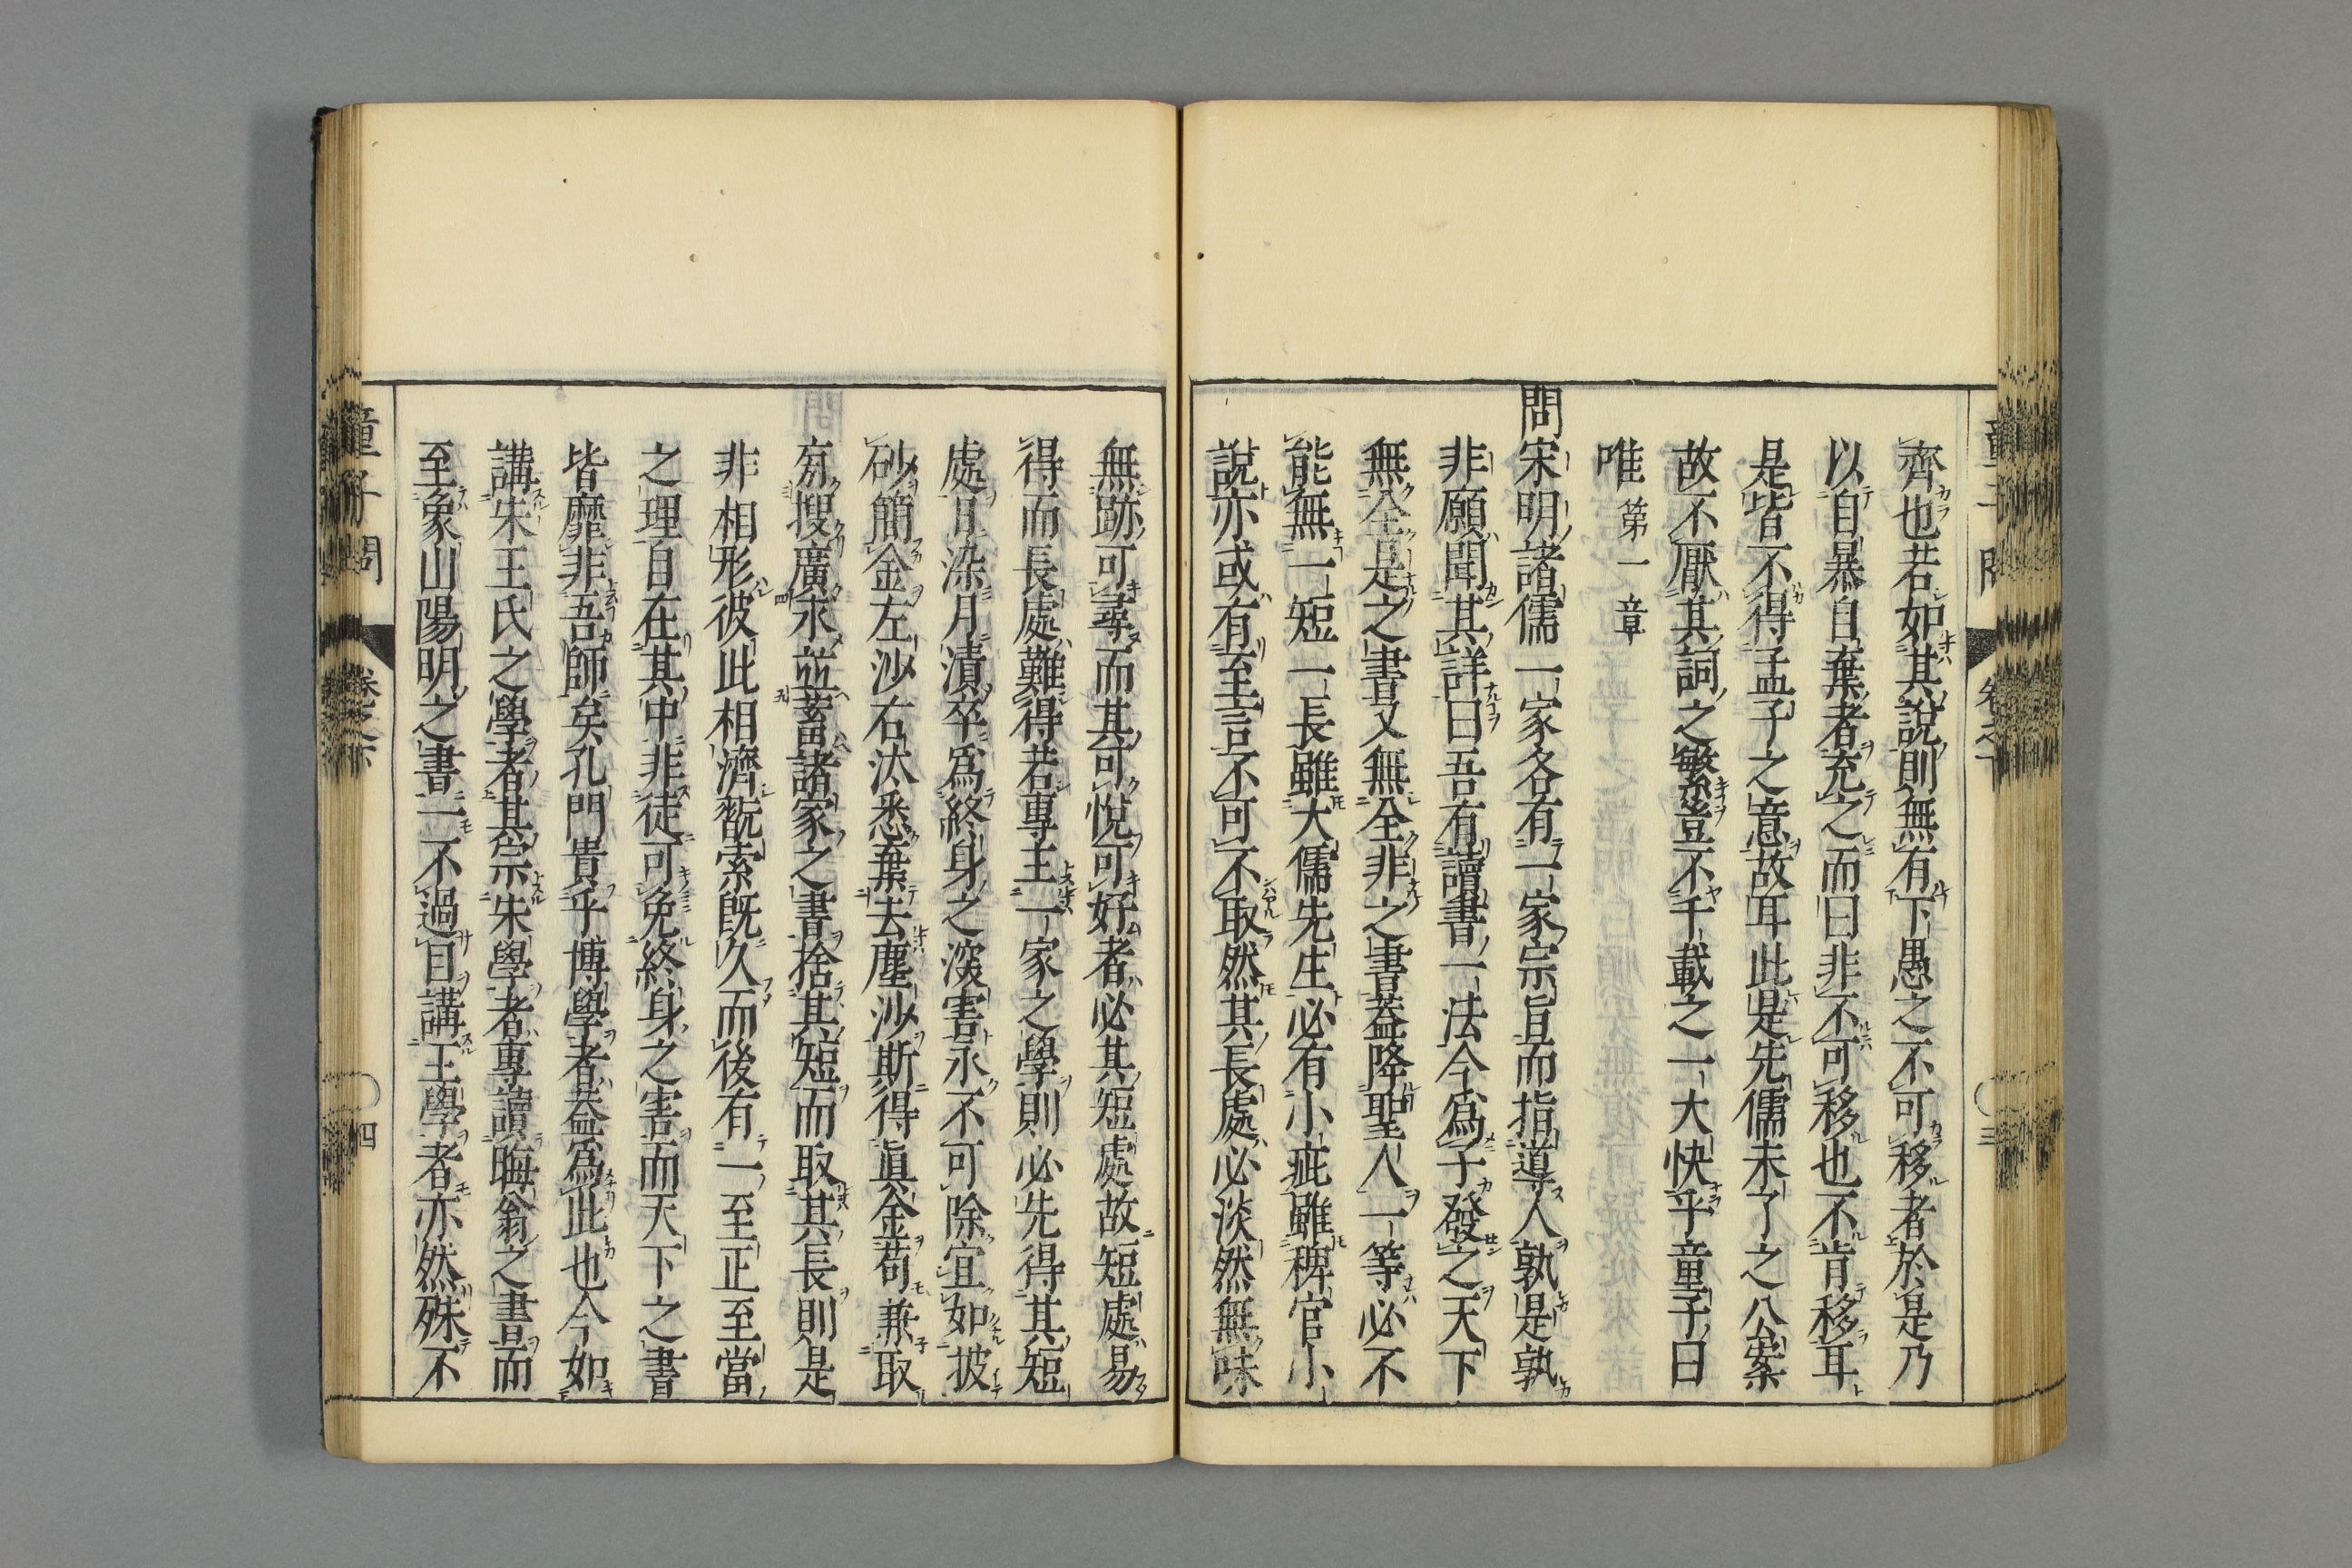 童子問 卷之下 三
齊也若如其說則無有下愚之不可移者於是乃
以自暴自棄者充之而曰非不可移也不肯移耳
是皆不得孟子之意故耳此是先儒未了之公案
故不厭其詞之繁豈不千載之一大快乎童子曰
唯 第一章
問宋明諸儒一家各有一家宗旨而指導人孰是孰
非願聞其詳曰吾有讀書一法今爲子發之天下
無全是之書又無全非之書蓋降聖人一等必不
能無一短一長雖大儒先生必有小疵雖稗官小
說亦或有至言不可不取然其長處必淡然無味
無跡可尋而其可悅可好者必其短處故短處易
得而長處難得若專主一家之學則必先得其短
處日染月漬卒爲終身之深害永不可除宜如披
砂簡金左沙右汰悉棄去塵沙斯得眞金苟兼取
旁搜廣求並蓄諸家之書捨其短而取其長則是
非相形彼此相濟翫索既久而後有一至正至當
之理自在其中非徒可免終身之害而天下之書
皆靡非吾師矣孔門貴乎博學者蓋爲此也今如
講朱王氏之學者其宗朱學者專讀晦翁之書而
至象山陽明之書一不過目講王學者亦然殊不
童子問 卷之下 四